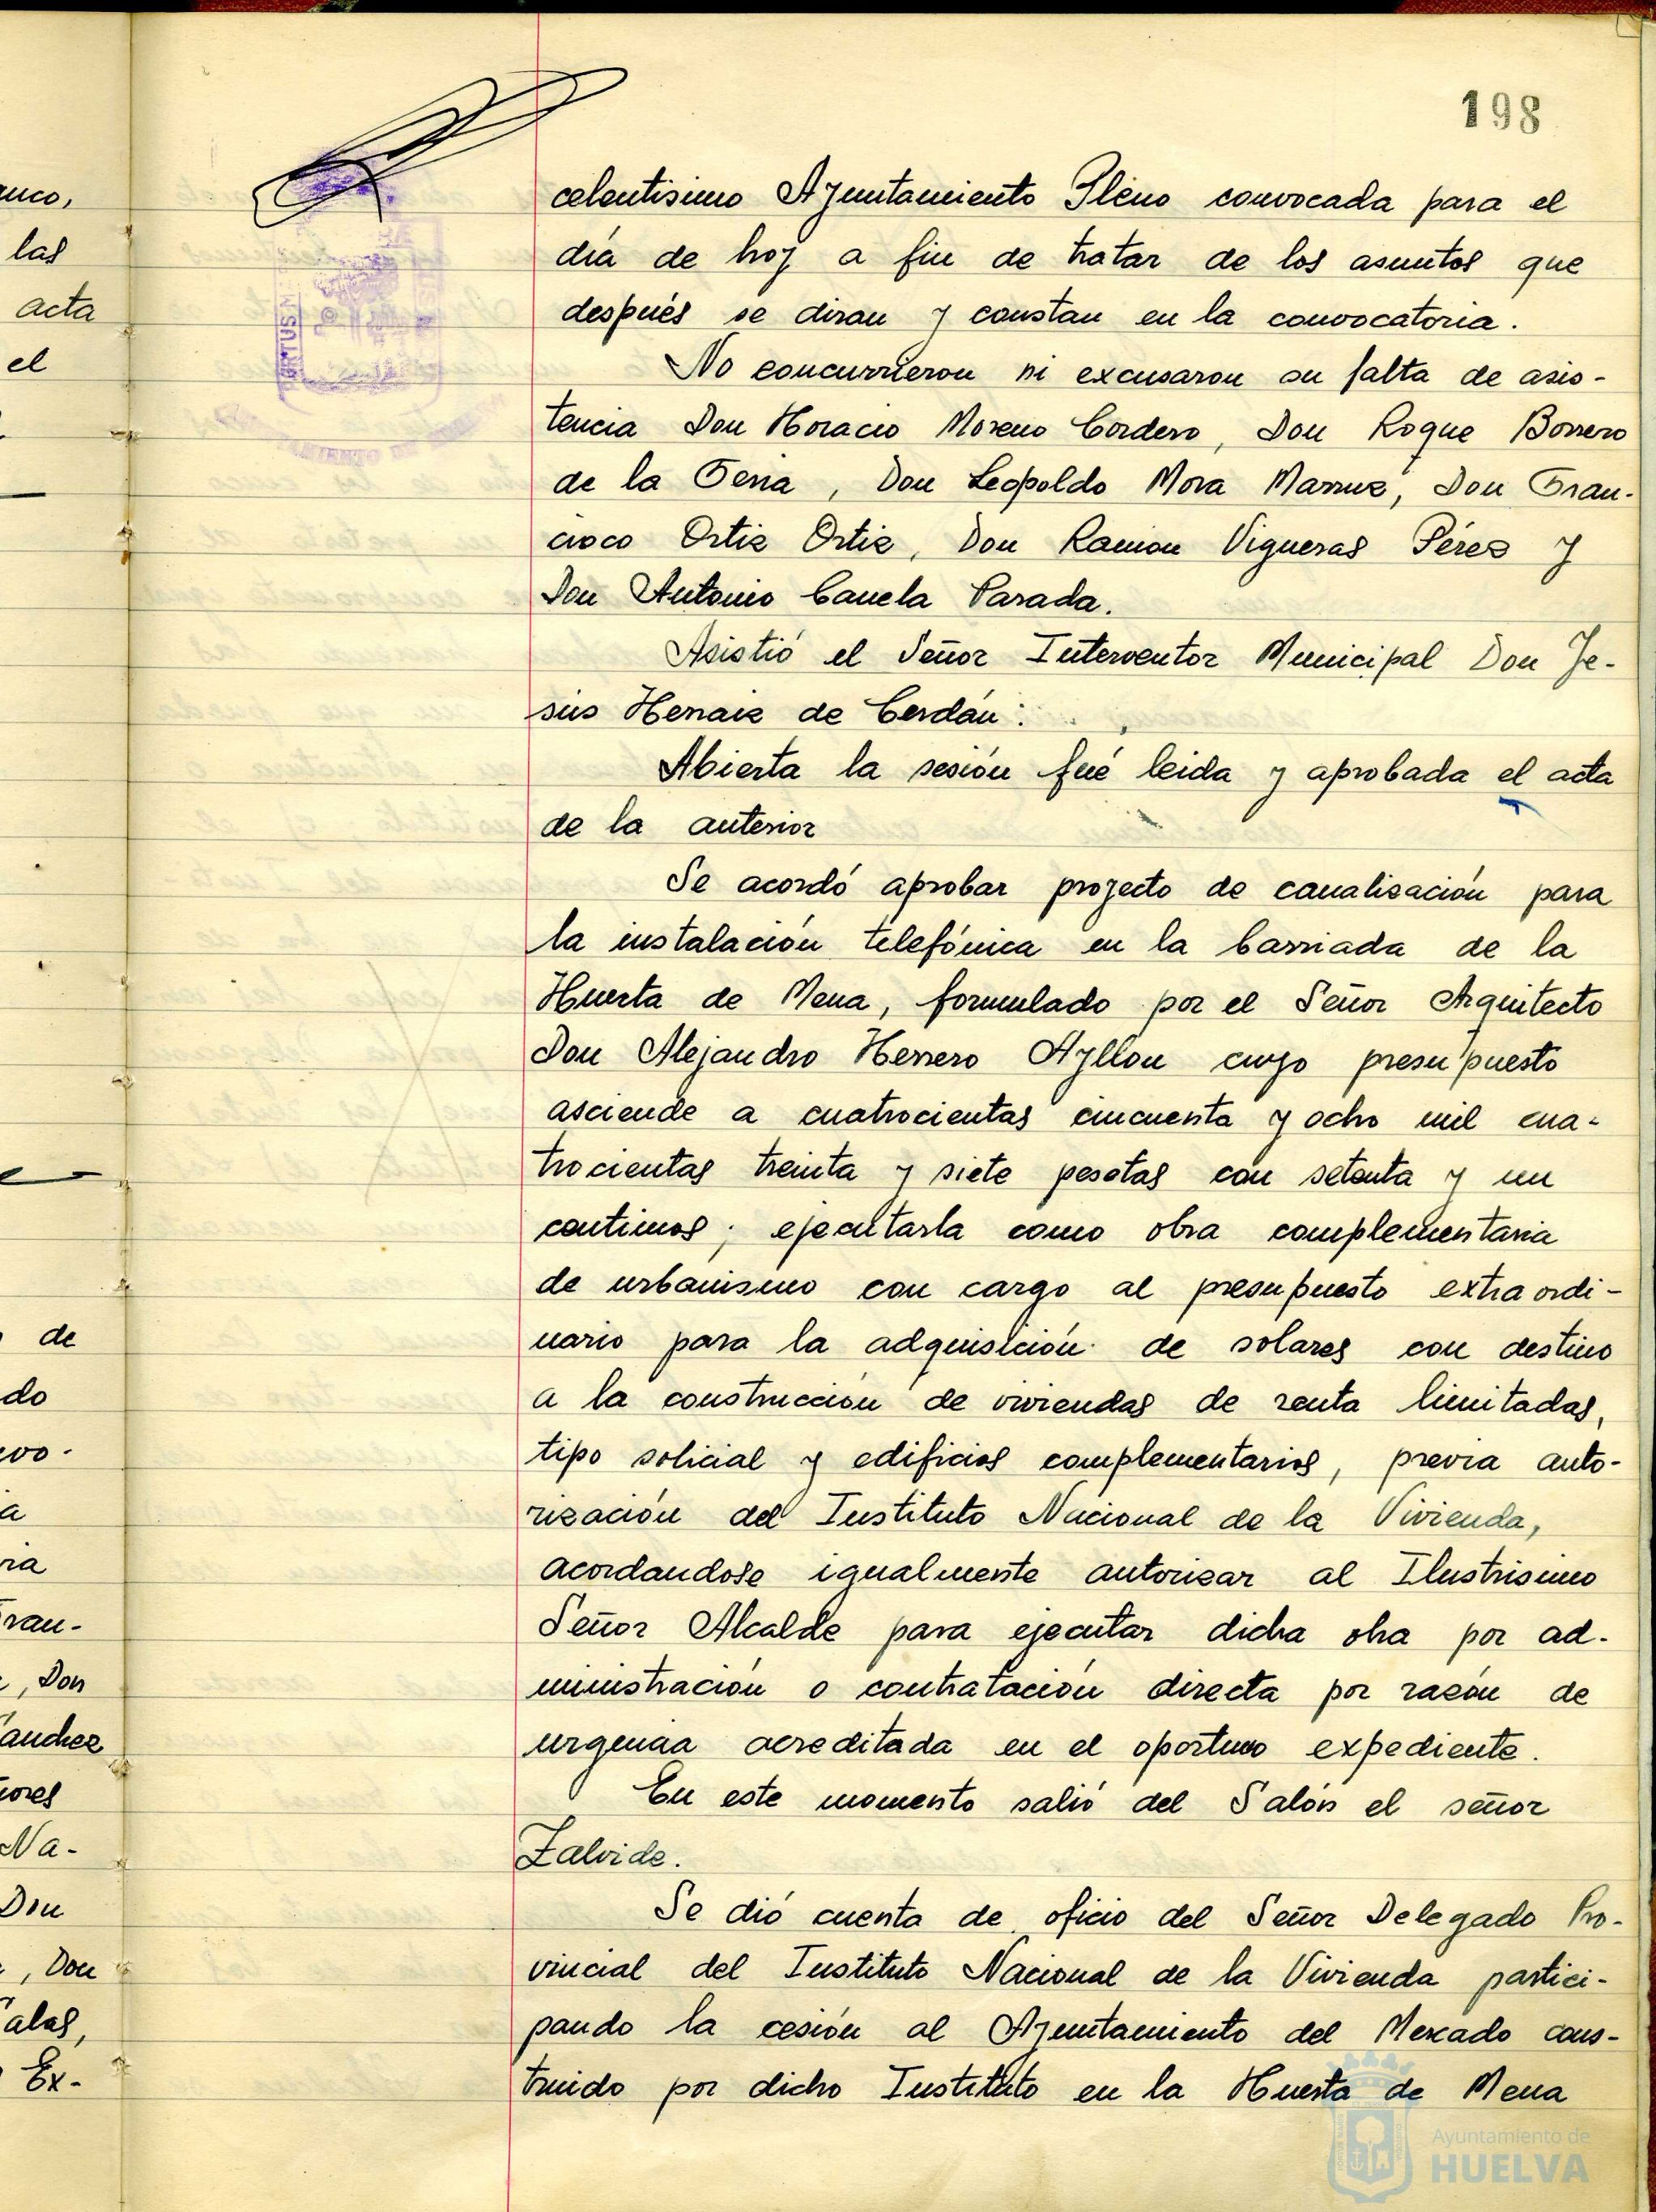 198
celentisimo Ayuntamiento Pleno convocada para el
día de hoy a fin de tratar de los asuntos que
después se diran y constan en la convocatoria.
No concurrieron ni excusaron su falta de asis-
tencia Don Horacio Moreno Cordero, Don Roque Borrero
de la Feria, Don Leopoldo Mora Marruz, Don Fran-
cisco Ortiz Ortiz, Don Ramon Vigueras Pérez y
Don Antonio Canela Parada.
Asistió el Señor Interventor Municipal Don Je-
sús Hernaiz de Cerdán.
Abierta la sesión fué leida y aprobada el acta
de la anterior
Se acordó aprobar proyecto de canalización para
la instalación telefónica en la barriada de la
Huerta de Mena, formulado por el Señor Arquitecto
Don Alejandro Herrero Ayllon cuyo presupuesto
asciende a cuatrocientas cincuenta y ocho mil cua-
trocientas treinta y siete pesetas con setenta y un
centimos; ejecutarla como obra complementaria
de urbanismo con cargo al presupuesto extraordi-
nario para la adquisición de solares con destino
a la construcción de viviendas de renta limitadas,
tipo solicial y edificios complementarios, previa auto-
rización del Instituto Nacional de la Vivienda,
acordandose igualmente autorizar al Ilustrisimo
Señor Alcalde para ejecutar dicha obra por ad-
ministración o contratación directa por razón de
urgencia acreditada en el oportuno expediente.
En este momento salió del Salón el señor
Zalvide.
Se dió cuenta de oficio del Señor Delegado Pro-
vincial del Instituto Nacional de la Vivienda partici-
pando la cesión al Ayuntamiento del Mercado cons-
truido por dicho Instituto en la Huerta de Mena
las
acta
el
de
do
, Don
Na-
Don
, Don
Ex-
Ayuntamiento de
HUELVA